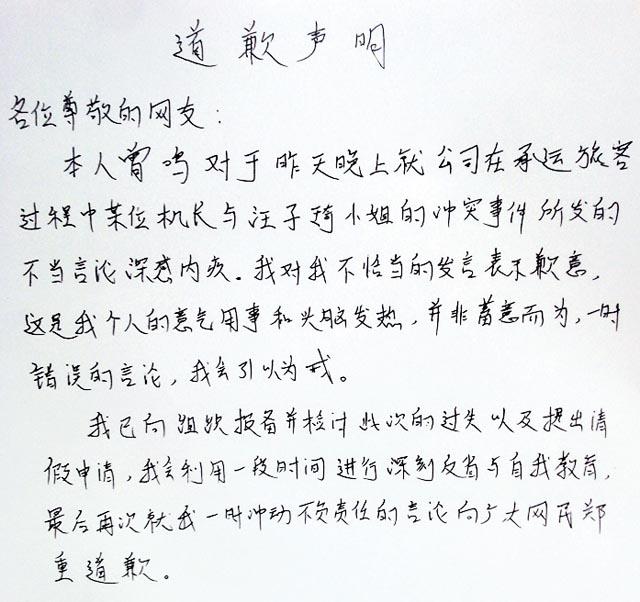 道歉声明
各位尊敬的网友：
本人曾鸣对于昨天晚上就公司在承运旅客
过程中某位机长与汪子琦小姐的冲突事件所发的
不当言论深感内疚。我对我不恰当的发言表示歉意，
这是我个人的意气用事和头脑发热，并非蓄意而为，一时
错误的言论，我会引以为戒。
我已向组织报备并检讨此次的过失以及提出请
假申请，我会利用一段时间进行深刻反省与自我教育，
最后再次就我一时冲动不负责任的言论向广大网民郑
重道歉。